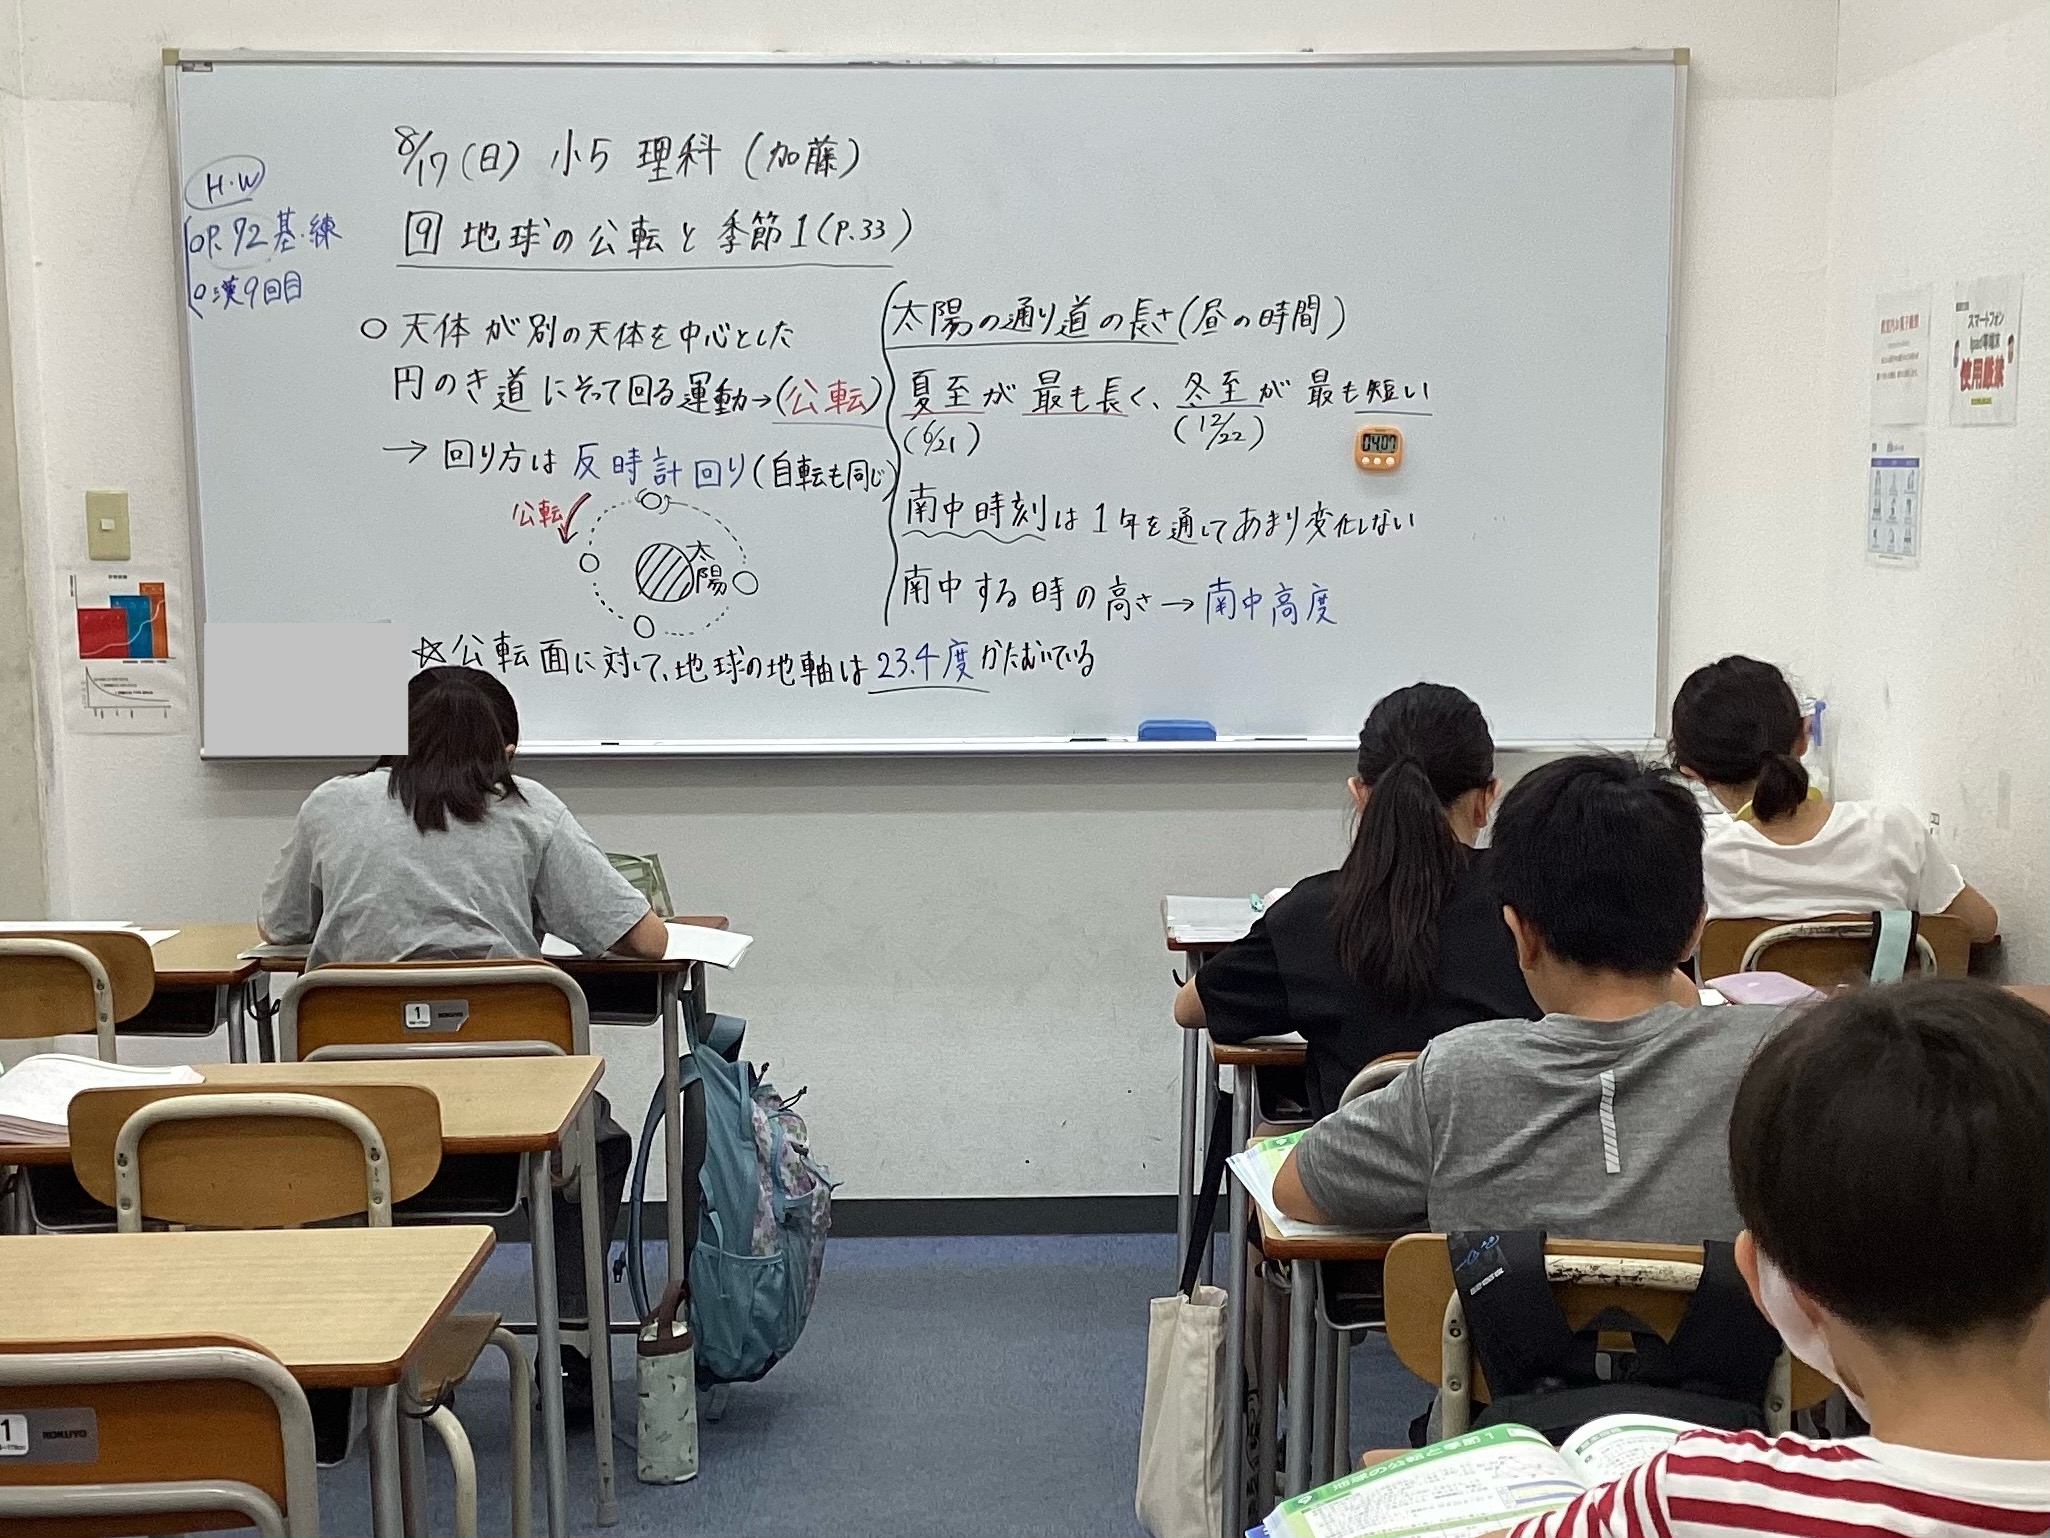 8/17(日) 小5 理科 (加藤)
9 地球の公転と季節1(P.33)
H.W
○P.92 基.練
○漢9回目
○天体が別の天体を中心とした
円のき道にそって回る運動→(公転)
→回り方は反時計回り(自転も同じ)
公転
太陽
☆公転面に対して、地球の地軸は23.4度かたむいている
太陽の通り道の長さ(昼の時間)
夏至が最も長く、冬至が最も短い
(6/21) (12/22)
04:07
南中時刻は1年を通してあまり変化しない
南中する時の高さ→南中高度
スマートフォン
使用厳禁
1 KOKUYO
1 KOKUYO
地球の公転と季節1